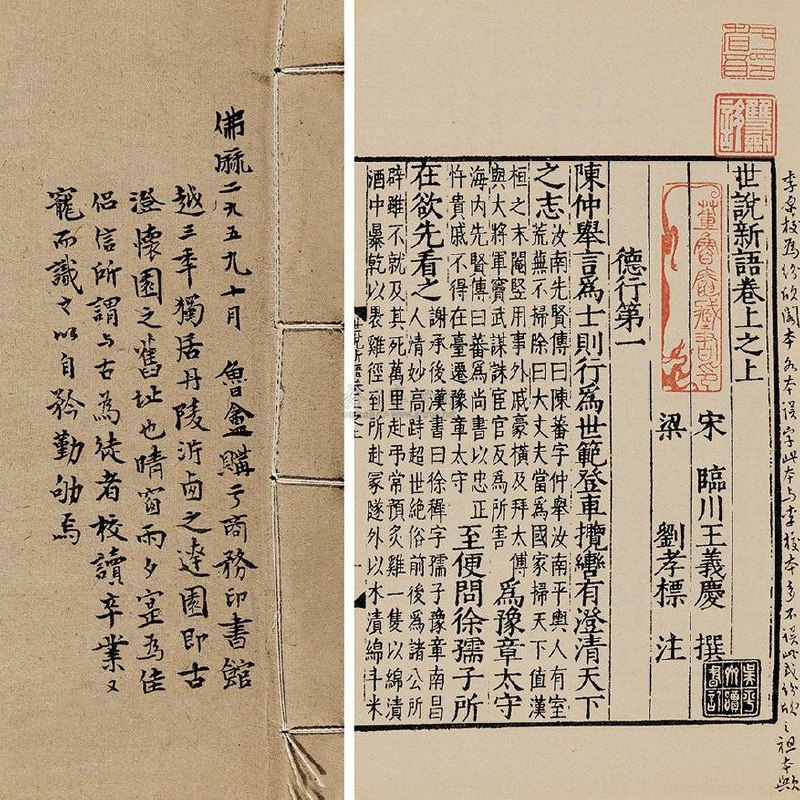 佛厤二九五九十月 魯盦購于商務印書館
越三季獨居丹陵沜卤之達園即古
澄懷園之舊址也晴窗雨夕寔為佳
侶信所謂与古為徒者校讀卒業又
寵而識之以自矜勤劬焉
本誤字此本与李校本多不誤此或份欣之祖本歟
世說新語卷上之上
宋 臨川王義慶 撰
梁 劉孝標 注
董魯盦藏書印
德行第一
陳仲舉言為士則行為世範登車攬轡有澄清天下
之志
汝南先賢傳曰陳蕃字仲舉汝南平輿人有室
荒蕪不掃除曰大丈夫當為國家掃天下值漢
桓之末閹豎用事外戚豪橫及拜太傅
與大將軍竇武謀誅宦官反為所害
為豫章太守
海内先賢傳曰蕃為尚書以忠正
忤貴戚不得在臺遷豫章太守
至便問徐孺子所
在欲先看之
謝承後漢書曰徐穉字孺子豫章南昌
人清妙高跱超世絕俗前後為諸公所
辟雖不就及其死萬里赴弔常預炙雞一隻以綿漬
酒中暴乾以裹雞徑到所赴冢隧外以水漬綿斗米